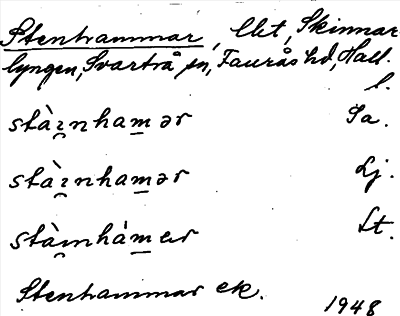 Stenhammar, lht, Skinnar-
lyngen, Svartrå sn, Faurås hd, Hall.
l.
stàɪnhamər Sa.
stàɪnhamər Lj.
stàɪnhámər Lt.
Stenhammar ek.
1948